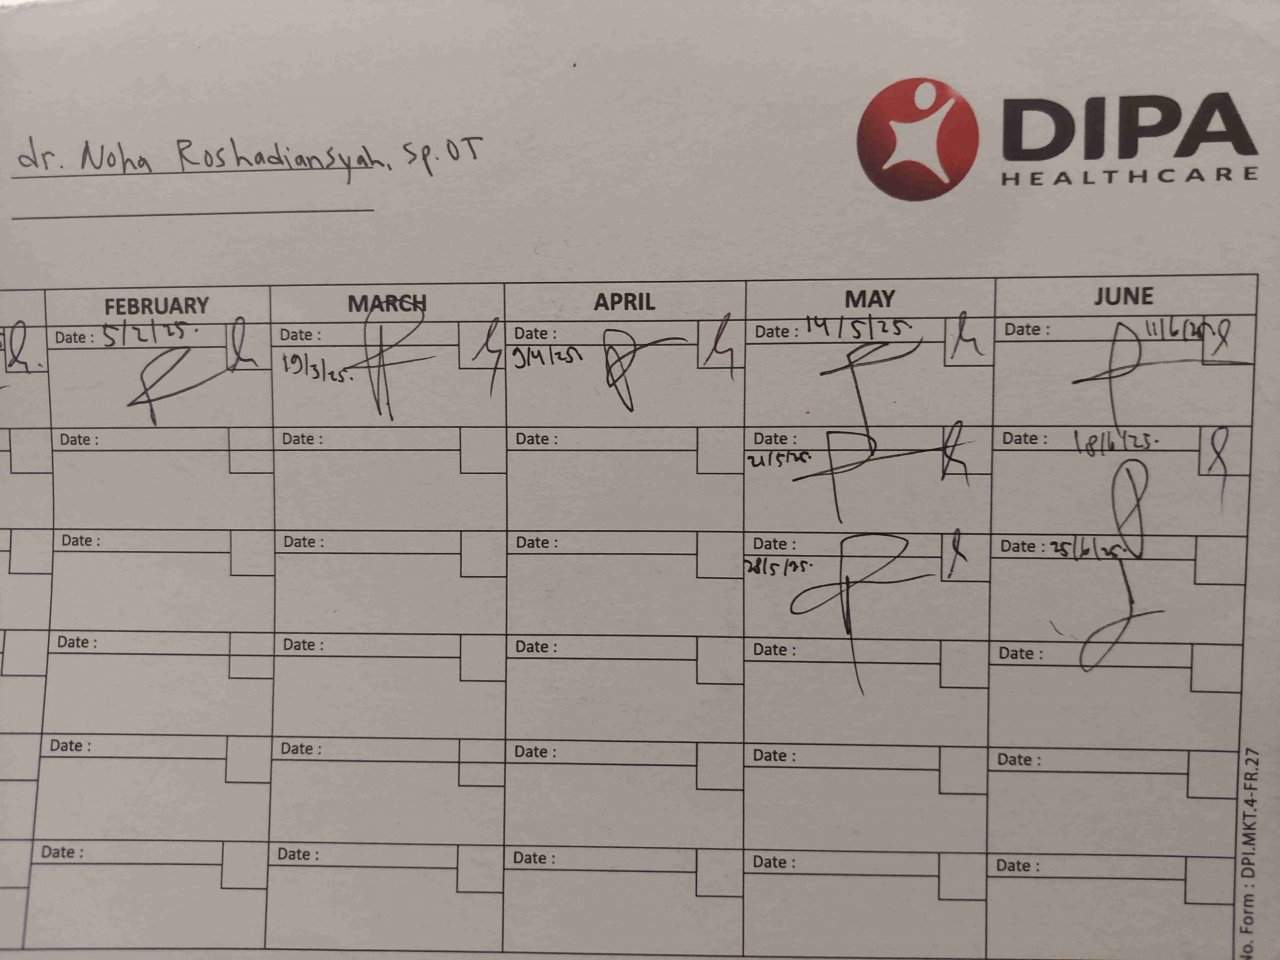 DIPA
HEALTHCARE
dr. Noha Roshadiansyah, Sp.OT
FEBRUARY MARCH APRIL MAY JUNE
Date : 5/2/25. Date : 19/3/25. Date : 9/4/25. Date : 14/5/25. Date : 11/6/25.
Date : Date : Date : Date : 21/5/25. Date : 18/6/25.
Date : Date : Date : Date : 28/5/25. Date : 25/6/25.
Date : Date : Date : Date : Date :
Date : Date : Date : Date : Date :
Date : Date : Date : Date : Date :
No. Form : DPI.MKT.4-FR.27